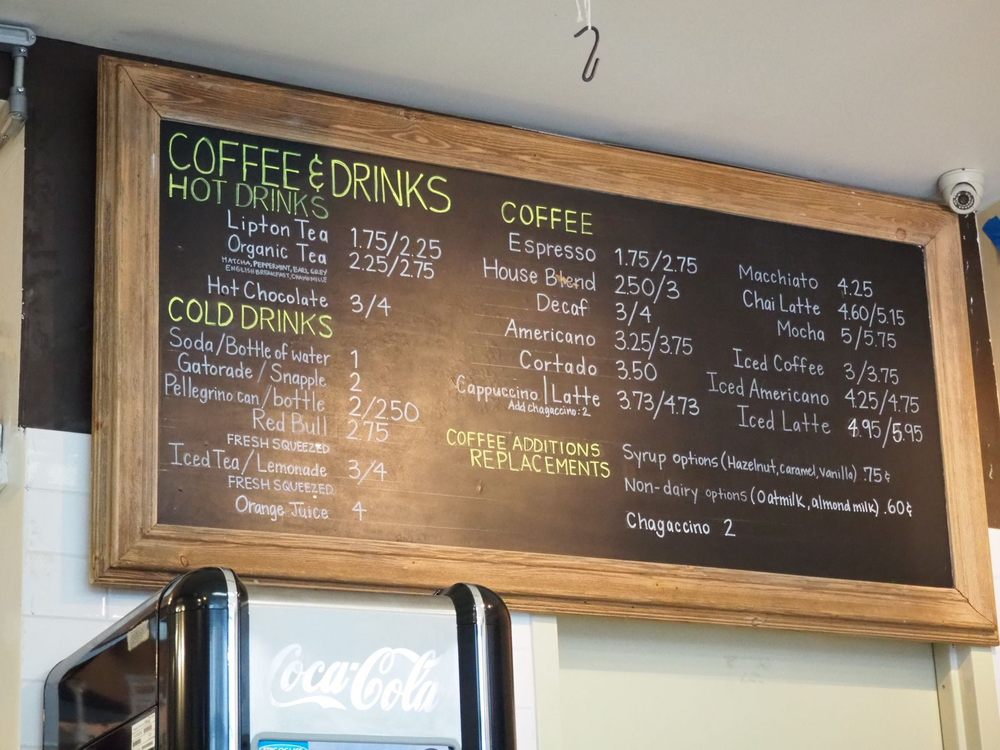 COFFEE & DRINKS
HOT DRINKS
Lipton Tea 1.75/2.25
Organic Tea 2.25/2.75
MATCHA, PEPPERMINT, EARL GREY
ENGLISH BREAKFAST, CHAMOMILE
Hot Chocolate 3/4
COLD DRINKS
Soda/Bottle of water 1
Gatorade/Snapple 2
Pellegrino can/bottle 2/2.50
Red Bull 2.75
FRESH SQUEEZED
Iced Tea/Lemonade 3/4
FRESH SQUEEZED
Orange Juice 4
COFFEE
Espresso 1.75/2.75
House Blend 2.50/3
Decaf 3/4
Americano 3.25/3.75
Cortado 3.50
Cappuccino|Latte 3.73/4.73
Add chagaccino: 2
Macchiato 4.25
Chai Latte 4.60/5.15
Mocha 5/5.75
Iced Coffee 3/3.75
Iced Americano 4.25/4.75
Iced Latte 4.95/5.95
COFFEE ADDITIONS
REPLACEMENTS
Syrup options (Hazelnut, caramel, vanilla) .75¢
Non-dairy options (Oatmilk, almond milk) .60¢
Chagaccino 2
Coca-Cola